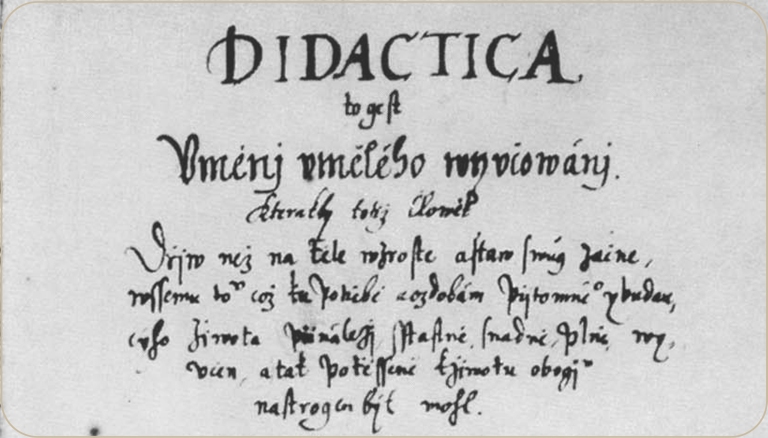 DIDACTICA
to gest
Vměnj vmělého wyvčowánj.
kterakby totiž człowěk
Dřjw než na těle wzroste a staw swůg začne,
wssemu tomu což ku potřebě a ozdobám přjtomného y budau,
cyho žiwota přináležj, sstastně, snadně, plně, wy,
včen, a tak potěsseně k žiwotu obogjmu
nastrogen být mohl.